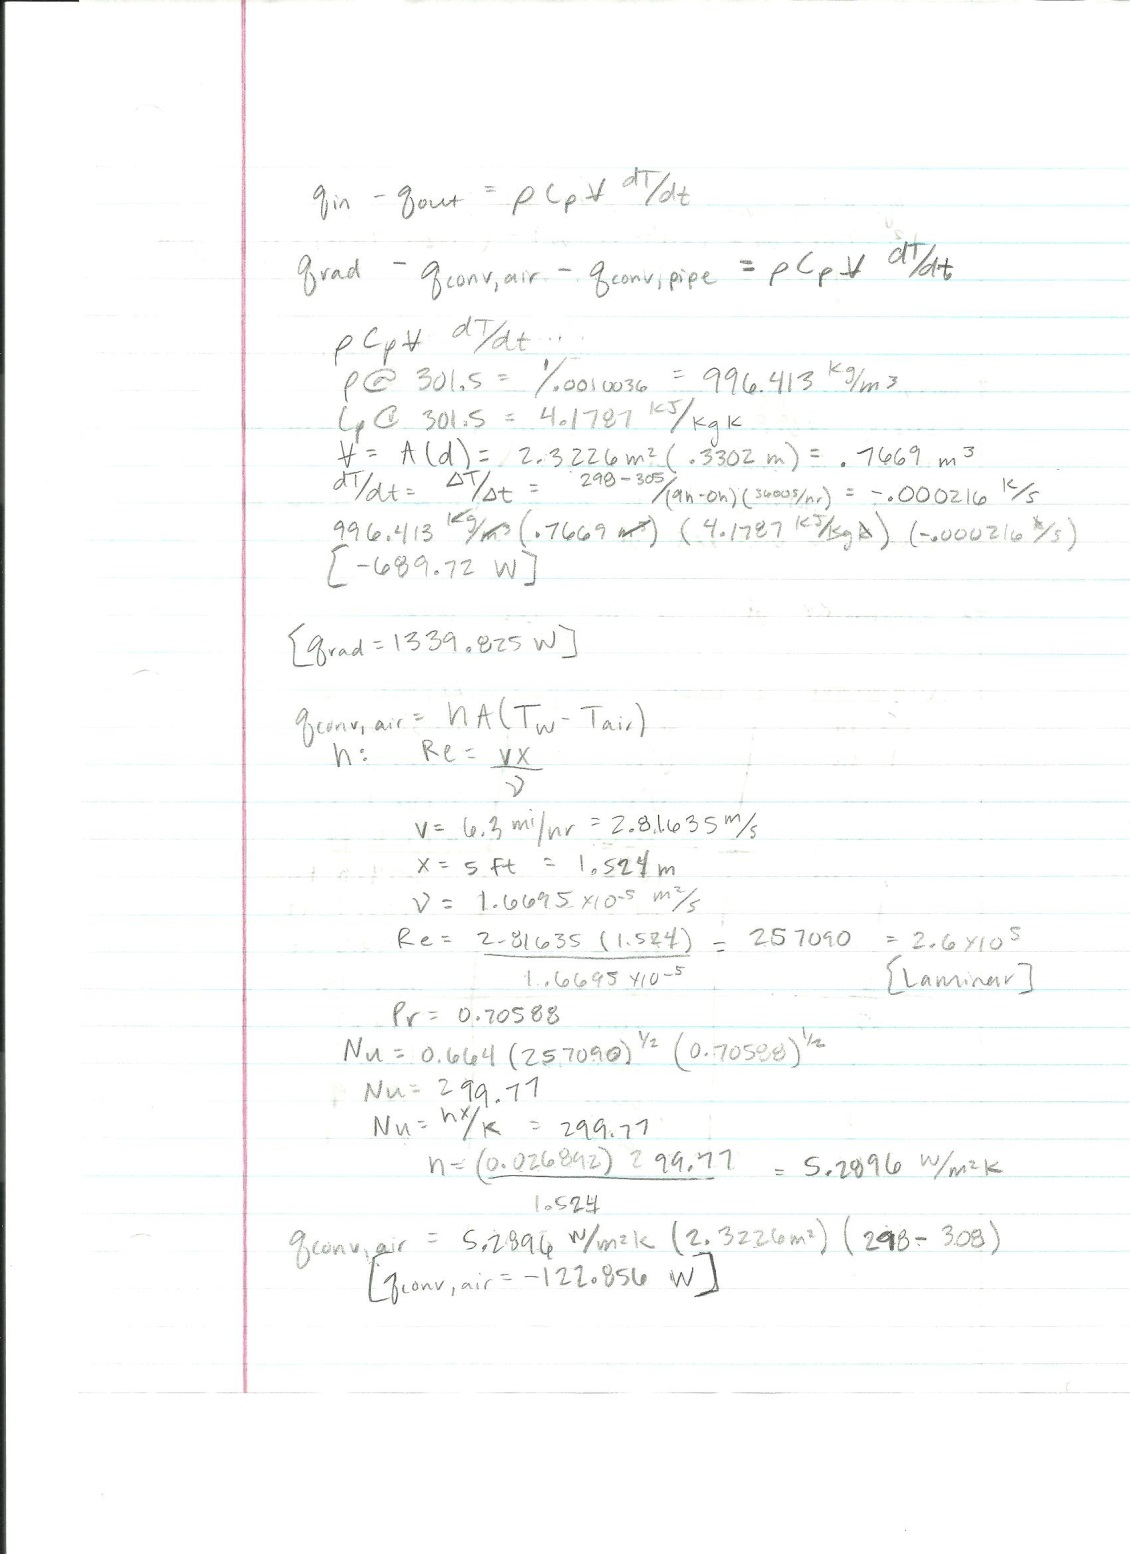 q_in - q_out = ρ Cp V dT/dt
q_rad - q_conv,air - q_conv,pipe = ρ Cp V dT/dt
ρ Cp V dT/dt ...
ρ @ 301.5 = 1/.0010036 = 996.413 kg/m3
Cp @ 301.5 = 4.1787 kJ/kg K
V = A(d) = 2.3226 m² (.3302 m) = .7669 m³
dT/dt = ΔT/Δt = 298-305/(9h-0h)(3600s/hr) = -.000216 K/s
996.413 kg/m³ (.7669 m³) (4.1787 kJ/kg K) (-.000216 K/s)
[-689.72 W]
[q_rad = 1339.825 W]
q_conv,air = h A (T_w - T_air)
h: Re = vx/ν
v = 6.3 mi/hr = 2.81635 m/s
x = 5 ft = 1.524 m
ν = 1.6695 x10-5 m²/s
Re = 2.81635 (1.524)/1.6695 x10-5 = 257090 = 2.6 x10⁵
[Laminar]
Pr = 0.70588
Nu = 0.664 (257090)^1/2 (0.70588)^1/2
Nu = 299.77
Nu = hx/k = 299.77
h = (0.026892) 299.77/1.524 = 5.2896 W/m²K
q_conv,air = 5.2896 W/m²K (2.3226 m²) (298 - 308)
[q_conv,air = -122.856 W]